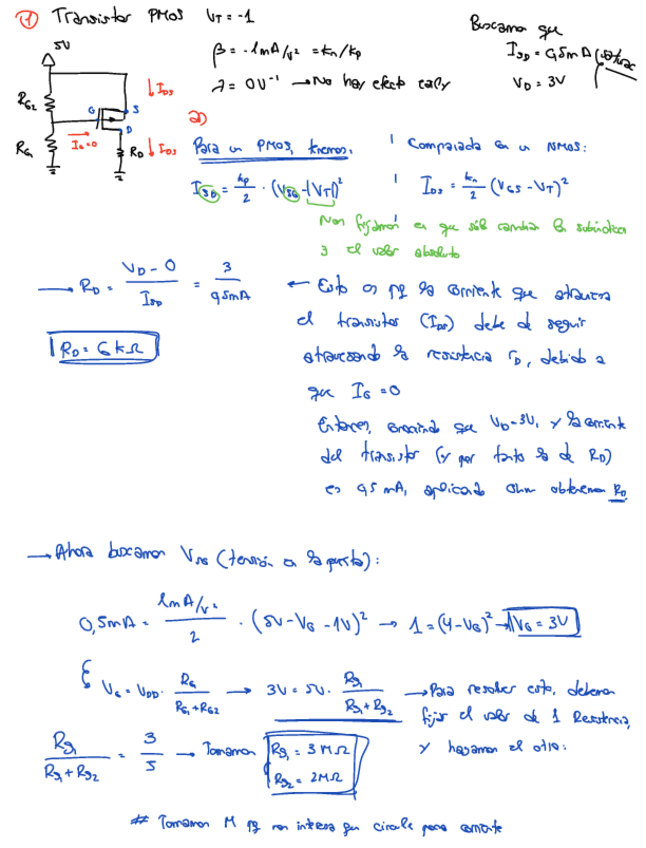 ① Transistor PMOS V_T = -1
β = -1mA/V² = kn/kp
λ = 0V⁻¹ → No hay efecto early
Buscamos que
I_SD = 0,5mA (saturac
V_D = 3V
5V
R_G2
R_G1
G
S
D
I_G=0
I_DS
R_D
I_DS
a)
Para un PMOS, tenemos:
I_SD = kp/2 · (V_SG - |V_T|)²
Comparada con un NMOS:
I_DS = kn/2 (V_GS - V_T)²
Nos fijamos en que sólo cambian los subíndices
y el valor absoluto
→ R_D = (V_D - 0)/I_SD = 3/0,5mA
R_D = 6 kΩ
← Esto es pq la corriente que atraviesa
el transistor (I_DS) debe de seguir
atravesando la resistencia r_D, debido a
que I_G = 0
Entonces, conociendo que V_D = 3V, y la corriente
del transistor (y por tanto la de R_D)
es 0,5 mA, aplicando Ohm obtenemos R_D
→ Ahora buscamos (tensión en la puerta):
0,5mA = (1mA/V²)/2 · (5V - V_G - 1V)² → 1 = (4 - V_G)² → V_G = 3V
V_G = V_DD · R_G1/(R_G1 + R_G2) → 3V = 5V · Rg1/(Rg1 + Rg2)
→ Para resolver esto, debemos
fijar el valor de 1 Resistencia,
y hayamos el otro:
Rg1/(Rg1 + Rg2) = 3/5 → Tomamos Rg1 = 3 MΩ
Rg2 = 2MΩ
## Tomamos M pq nos interesa que circule poca corriente